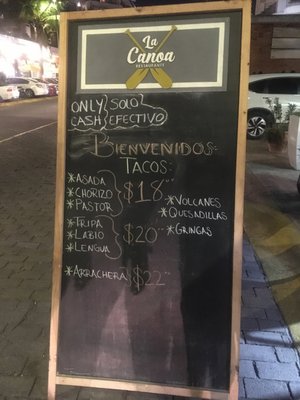 La
Canoa
RESTAURANTE
ONLY SOLO
CASH EFECTIVO
BIENVENIDOS
TACOS:
*ASADA
*CHORIZO $18.00
*PASTOR
*VOLCANES
*QUESADILLAS
*GRINGAS
*TRIPA
*LABIO $20.00
*LENGUA
*ARRACHERA $22.00